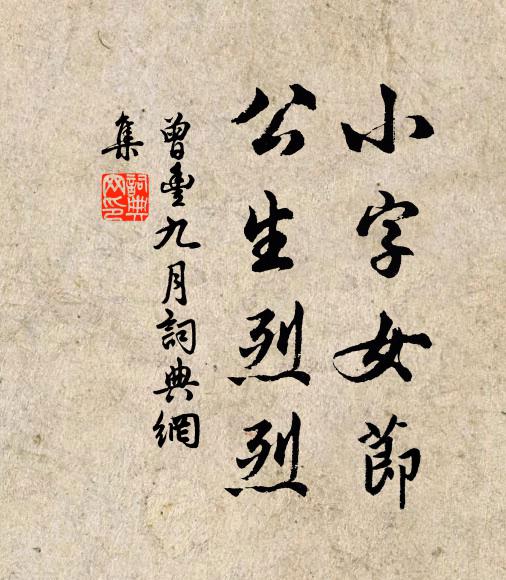 小字女節
公生烈烈
曾豐九月詞典網
集
詞典
网印